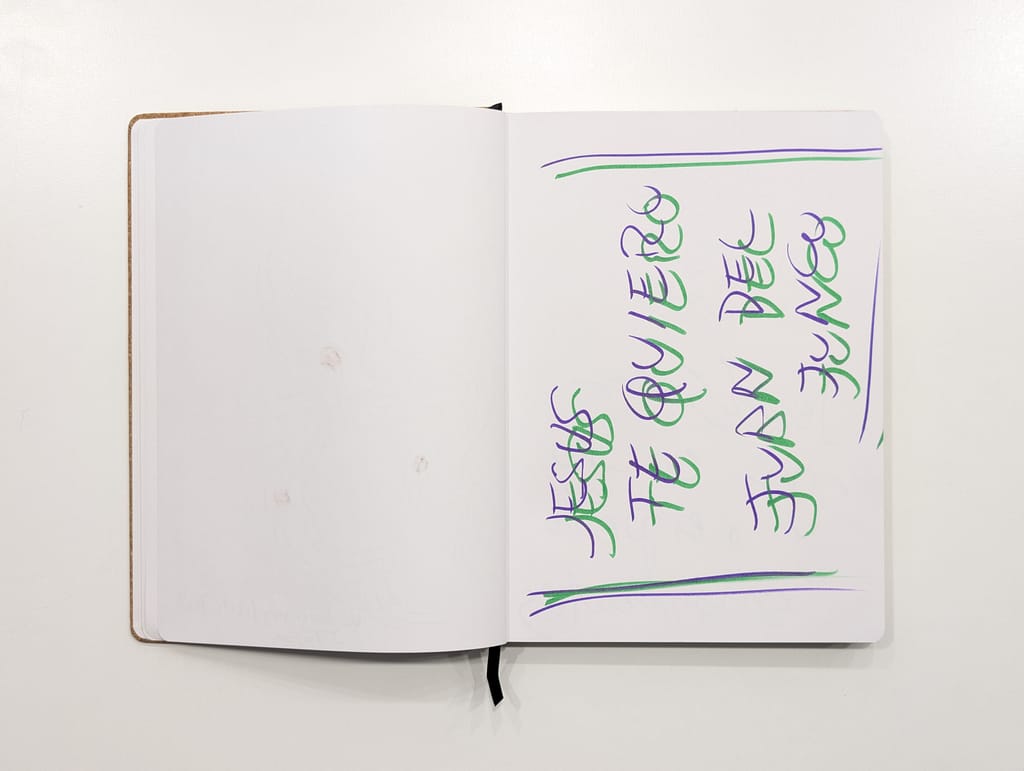 JESUS
TE QUIERO
JUAN DEL
JUNCO